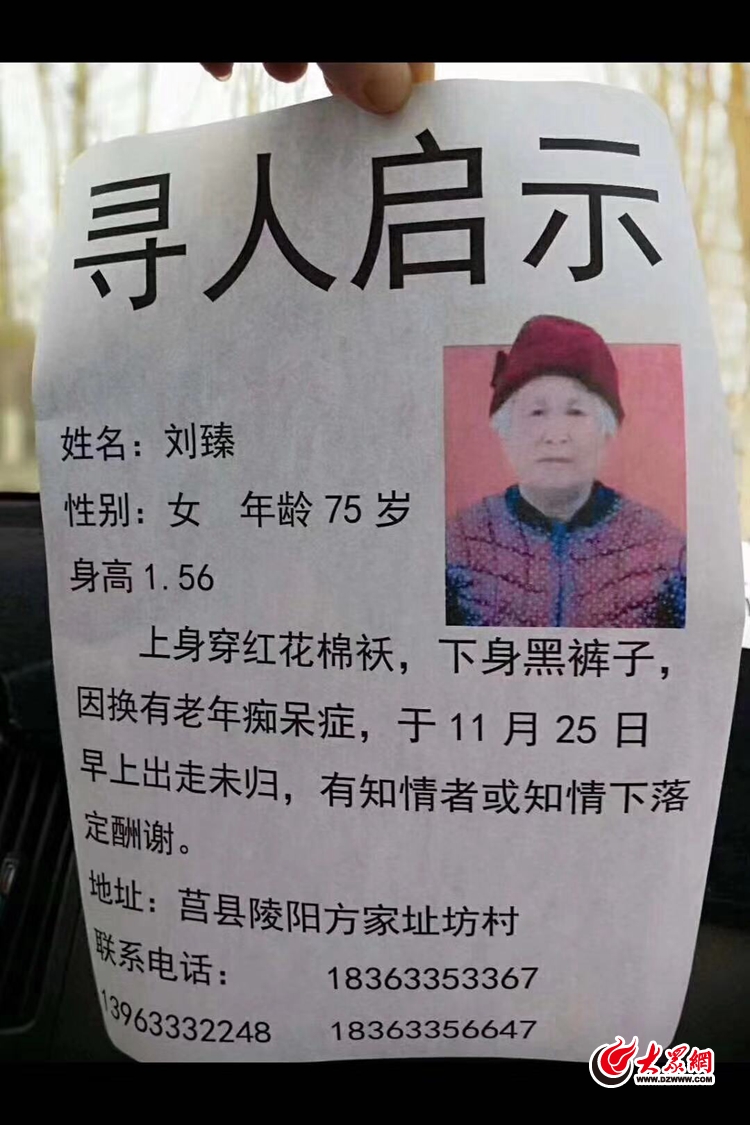 寻人启示
姓名：刘臻
性别：女 年龄 75 岁
身高 1.56
上身穿红花棉袄，下身黑裤子，
因换有老年痴呆症，于 11 月 25 日
早上出走未归，有知情者或知情下落
定酬谢。
地址：莒县陵阳方家址坊村
联系电话： 18363353367
13963332248 18363356647
大众網
WWW.DZWWW.COM